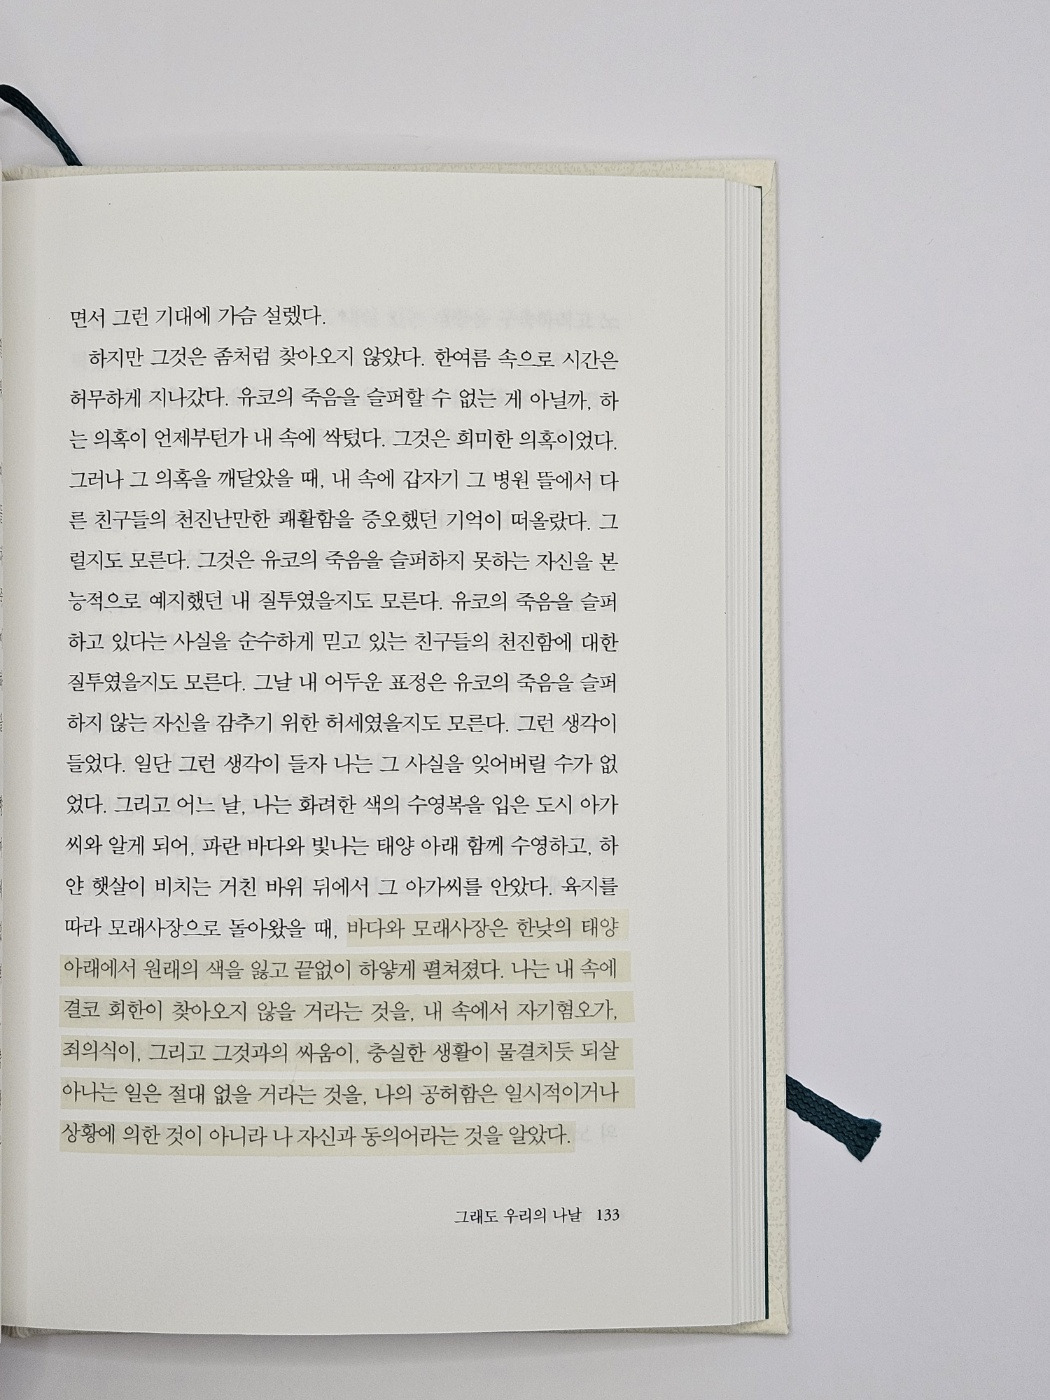 면서 그런 기대에 가슴 설렜다.
하지만 그것은 좀처럼 찾아오지 않았다. 한여름 속으로 시간은
허무하게 지나갔다. 유코의 죽음을 슬퍼할 수 없는 게 아닐까, 하
는 의혹이 언제부턴가 내 속에 싹텄다. 그것은 희미한 의혹이었다.
그러나 그 의혹을 깨달았을 때, 내 속에 갑자기 그 병원 뜰에서 다
른 친구들의 천진난만한 쾌활함을 증오했던 기억이 떠올랐다. 그
럴지도 모른다. 그것은 유코의 죽음을 슬퍼하지 못하는 자신을 본
능적으로 예지했던 내 질투였을지도 모른다. 유코의 죽음을 슬퍼
하고 있다는 사실을 순수하게 믿고 있는 친구들의 천진함에 대한
질투였을지도 모른다. 그날 내 어두운 표정은 유코의 죽음을 슬퍼
하지 않는 자신을 감추기 위한 허세였을지도 모른다. 그런 생각이
들었다. 일단 그런 생각이 들자 나는 그 사실을 잊어버릴 수가 없
었다. 그리고 어느 날, 나는 화려한 색의 수영복을 입은 도시 아가
씨와 알게 되어, 파란 바다와 빛나는 태양 아래 함께 수영하고, 하
얀 햇살이 비치는 거친 바위 뒤에서 그 아가씨를 안았다. 육지를
따라 모래사장으로 돌아왔을 때, 바다와 모래사장은 한낮의 태양
아래에서 원래의 색을 잃고 끝없이 하얗게 펼쳐졌다. 나는 내 속에
결코 회한이 찾아오지 않을 거라는 것을, 내 속에서 자기혐오가,
죄의식이, 그리고 그것과의 싸움이, 충실한 생활이 물결치듯 되살
아나는 일은 절대 없을 거라는 것을, 나의 공허함은 일시적이거나
상황에 의한 것이 아니라 나 자신과 동의어라는 것을 알았다.
그래도 우리의 나날 133